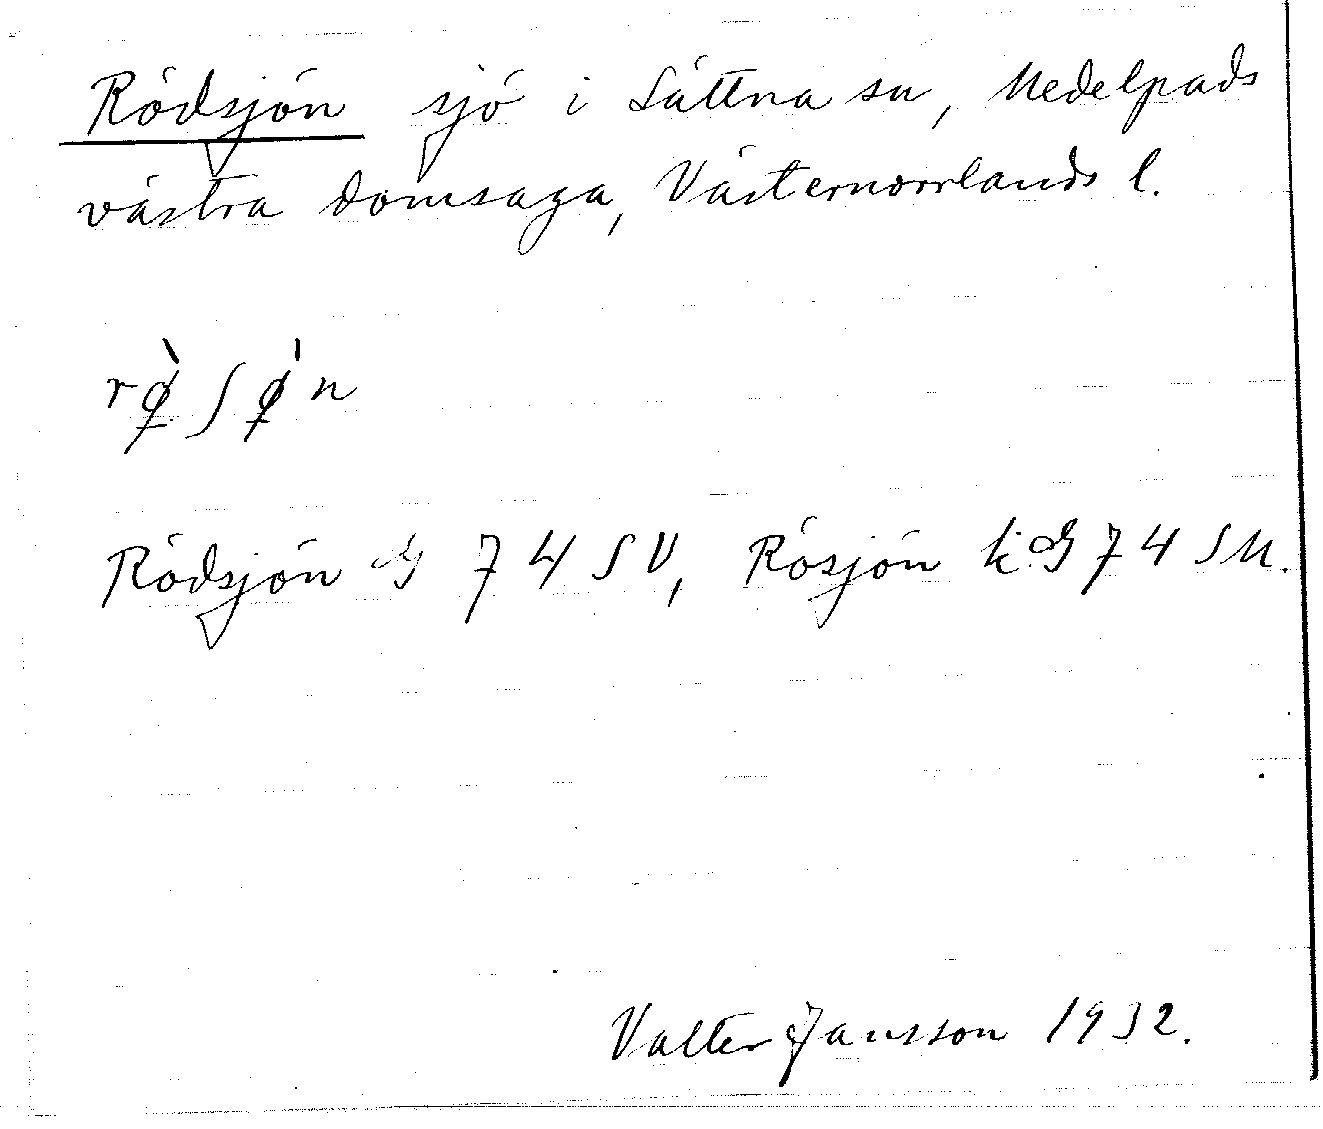 Rödsjön sjö i Sättna sn, Medelpads
västra domsaga, Västernorrlands l.
rø̀ʃø̍n
Rödsjön G 74 SV, Rösjön k:G 74 SM.
Valter Jansson 1932.